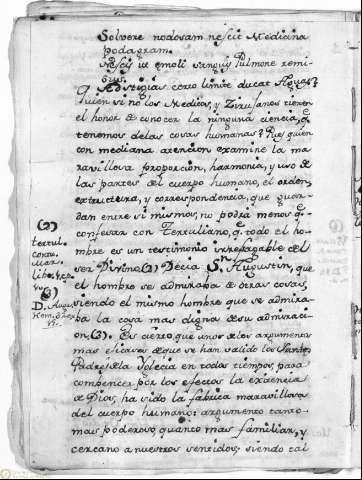 Solvere nodosam nescit Medicina
podagram.
Nescis ut emoti sanguis Pulmone remi-
Quien si no los Medicos, y Zirujanos tienen
el honor de conocer la ninguna ciencia, q
tenemos de las cosas humanas? Pues quien
con mediana atencion examine la ma
ravillosa proporcion, harmonia, y uso de
las partes del cuerpo humano, el orden,
extructura, y correspondencia, que guar-
dan entre si mismos, no podra menos q
confesar con Tertuliano, q todo el hom
bre es un testimonio irrefragable del
ser Divino (2) Decia Sn. Augustin, que
el hombre se admiraba de otras cosas,
siendo el mismo hombre que se admira-
ba la cosa mas digna de su admira-
cion (3). Es cierto, que uno de los argumentos
mas eficaces de que se han valido los Santos
Padres de la Yglecia en todos tiempos, para
combencer por los efectos la existencia
de Dios, ha sido la fabrica maravillosa
del cuerpo humano: argumento tanto
mas poderoso, quanto mas familiar, y
cercano a nuestros sentidos; siendo tal
(2)
tertul.
contr.
Marc.
(3)
D. Augus